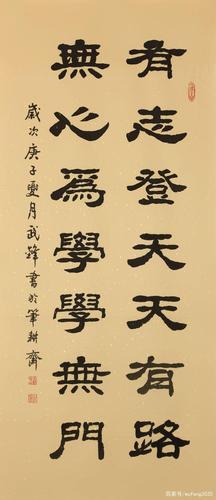 有志登天天有路
無心為學學無門
歲次庚子夏月武鋒書於筆耕齋